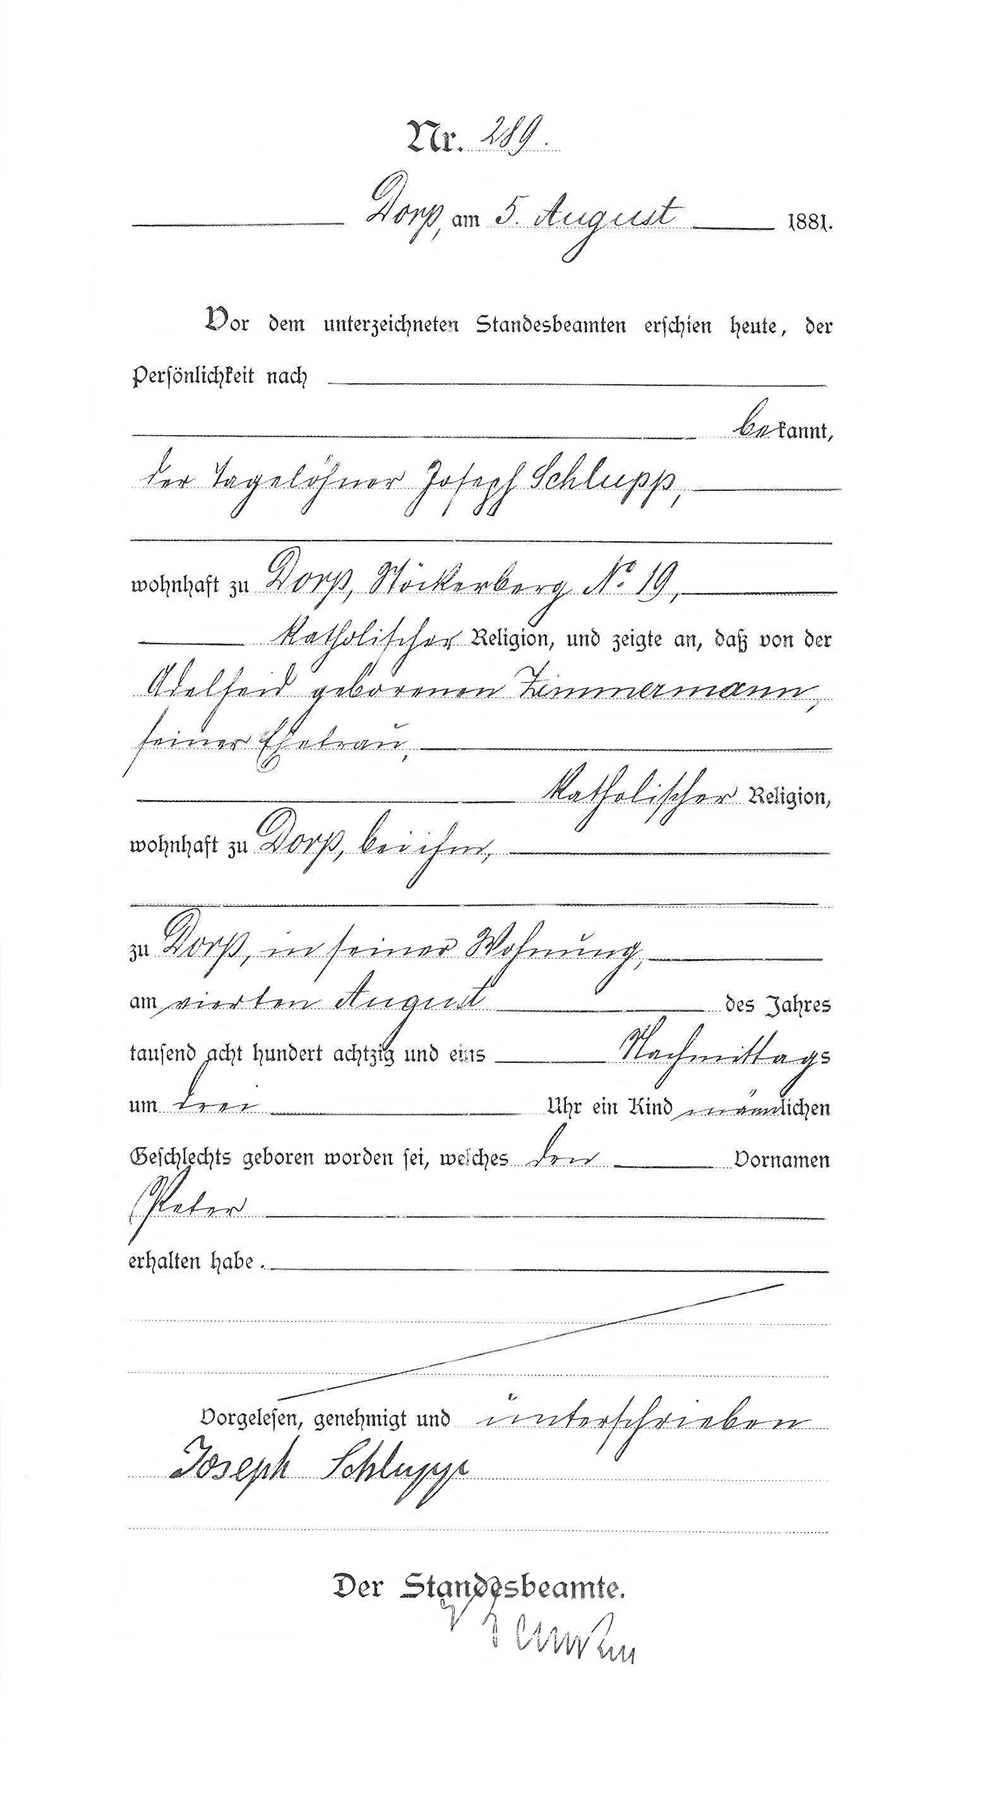 Nr. 289.
Dorp, am 5. August 1881.
Vor dem unterzeichneten Standesbeamten erschien heute, der
Persönlichkeit nach
bekannt,
der Tagelöhner Joseph Schlupp,
wohnhaft zu Dorp, Stöckerberg No 19,
katholischer Religion, und zeigte an, daß von der
Adelheid geborenen Zimmermann,
seiner Ehefrau,
katholischer Religion,
wohnhaft zu Dorp, bei ihm,
zu Dorp, in seiner Wohnung,
am vierten August des Jahres
tausend acht hundert achtzig und eins Nachmittags
um drei Uhr ein Kind männlichen
Geschlechts geboren worden sei, welches den Vornamen
Peter
erhalten habe.
Vorgelesen, genehmigt und unterschrieben
Joseph Schlupp
Der Standesbeamte.